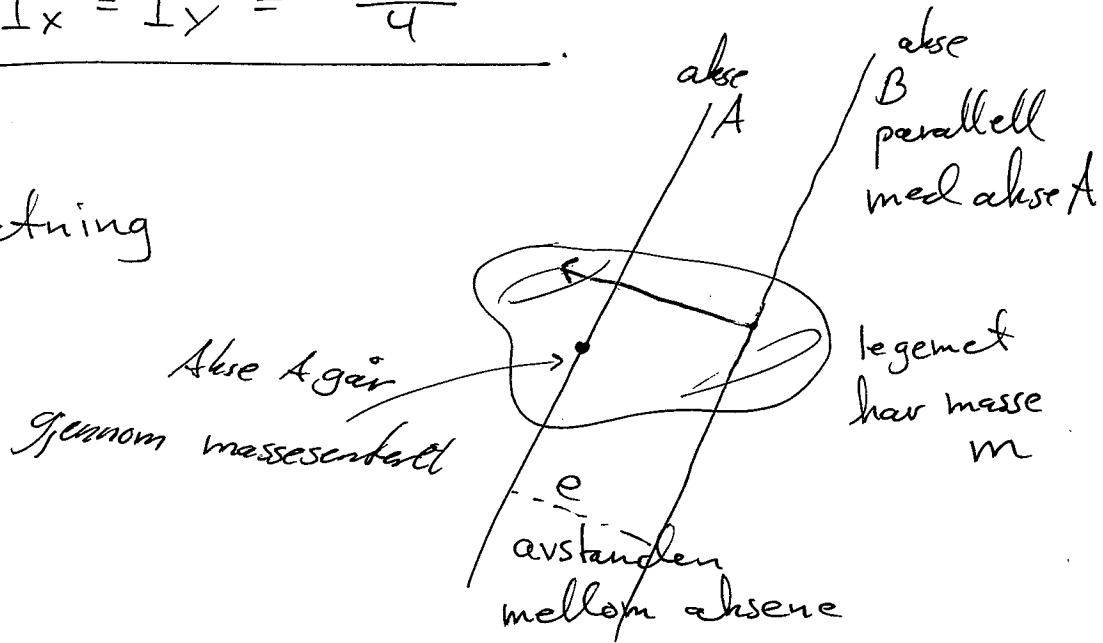 I x = I y = 4
akse
A
akse
B
parallell
med akse A
tning
Akse A går
gjennom massesenteret
legemet
har masse
m
e
avstanden
mellom aksene